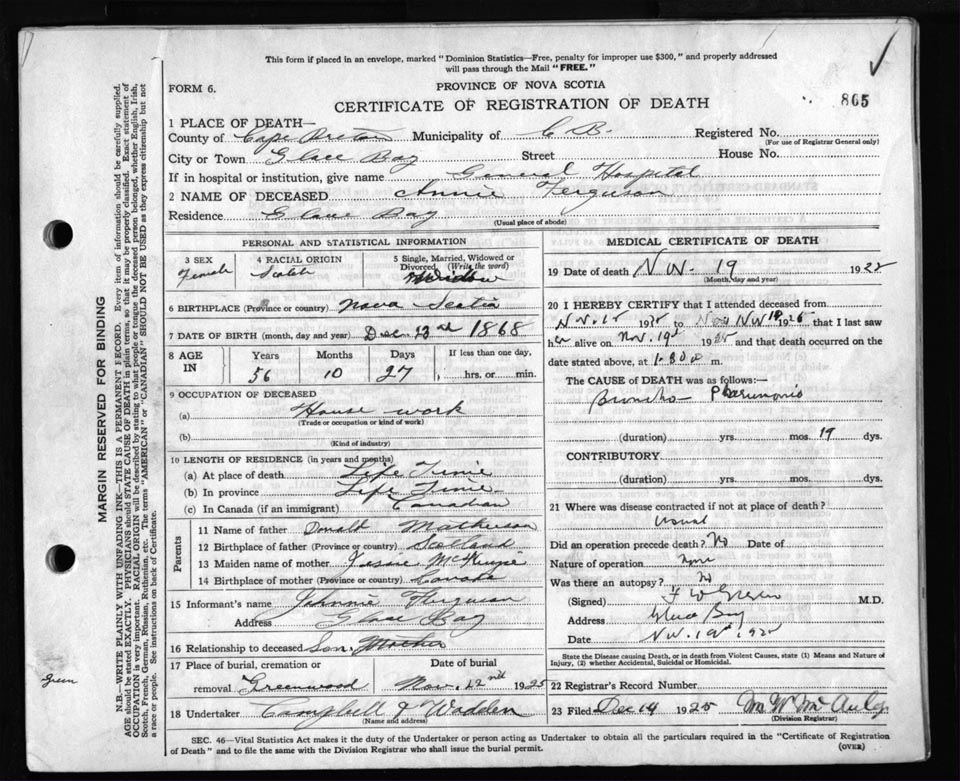 This form if placed in an envelope, marked "Dominion Statistics—Free, penalty for improper use $300," and properly addressed
will pass through the Mail "FREE."
FORM 6.
PROVINCE OF NOVA SCOTIA
CERTIFICATE OF REGISTRATION OF DEATH
865
1 PLACE OF DEATH—
County of Cape Breton Municipality of C B. Registered No.
(For use of Registrar General only)
City or Town Glace Bay Street House No.
If in hospital or institution, give name General Hospital
2 NAME OF DECEASED Annie Ferguson
Residence Glace Bay
(Usual place of abode)
PERSONAL AND STATISTICAL INFORMATION
3 SEX 4 RACIAL ORIGIN 5 Single, Married, Widowed or
Divorced. (Write the word)
Female Widow
6 BIRTHPLACE (Province or country) Nova Scotia
7 DATE OF BIRTH (month, day and year) Dec. 1868
8 AGE IN Years Months Days If less than one day,
56 10 27 hrs. or min.
9 OCCUPATION OF DECEASED
(a) House work
(Trade or occupation or kind of work)
(b)
(Kind of industry)
10 LENGTH OF RESIDENCE (in years and months)
(a) At place of death Life Time
(b) In province Life Time
(c) In Canada (if an immigrant) Canadian
Parents
11 Name of father Donald Matheson
12 Birthplace of father (Province or country) Scotland
13 Maiden name of mother
14 Birthplace of mother (Province or country) Canada
15 Informant's name Johnnie Ferguson
Address Glace Bay
16 Relationship to deceased Son
17 Place of burial, cremation or Date of burial
removal Greenwood Nov. 1925
18 Undertaker Campbell & Wadden
(Name and address)
MEDICAL CERTIFICATE OF DEATH
19 Date of death Nov. 19 1925
(Month, day and year)
20 I HEREBY CERTIFY that I attended deceased from
Nov. 1925 to Nov that I last saw
her alive on Nov. 19 1925 and that death occurred on the
date stated above, at m.
The CAUSE OF DEATH was as follows:—
Broncho Pneumonia
(duration) yrs. mos. 19 dys.
CONTRIBUTORY
(duration) yrs. mos. dys.
21 Where was disease contracted if not at place of death?
usual
Did an operation precede death? No Date of
Nature of operation None
Was there an autopsy? No
(Signed) M.D.
Address Glace Bay
Date Nov. 19 1925
State the Disease causing Death, or in death from Violent Causes, state (1) Means and Nature of
Injury, (2) whether Accidental, Suicidal or Homicidal.
22 Registrar's Record Number
23 Filed Dec 14 1925
(Division Registrar)
SEC. 46—Vital Statistics Act makes it the duty of the Undertaker or person acting as Undertaker to obtain all the particulars required in the "Certificate of Registration
of Death" and to file the same with the Division Registrar who shall issue the burial permit.
(OVER)
MARGIN RESERVED FOR BINDING
N.B.—WRITE PLAINLY WITH UNFADING INK—THIS IS A PERMANENT RECORD. Every item of information should be carefully supplied.
AGE should be stated EXACTLY. PHYSICIANS should STATE CAUSE OF DEATH in plain terms, so that it may be properly classified. Exact statement of
OCCUPATION is very important. RACIAL ORIGIN will be described by stating to what people or tongue the deceased person belonged, whether English, Irish,
Scotch, French, German, Russian, Ruthenian, etc. The terms "AMERICAN" or "CANADIAN" SHOULD NOT BE USED as they express citizenship but not
a race or people. See instructions on back of Certificate.
Green